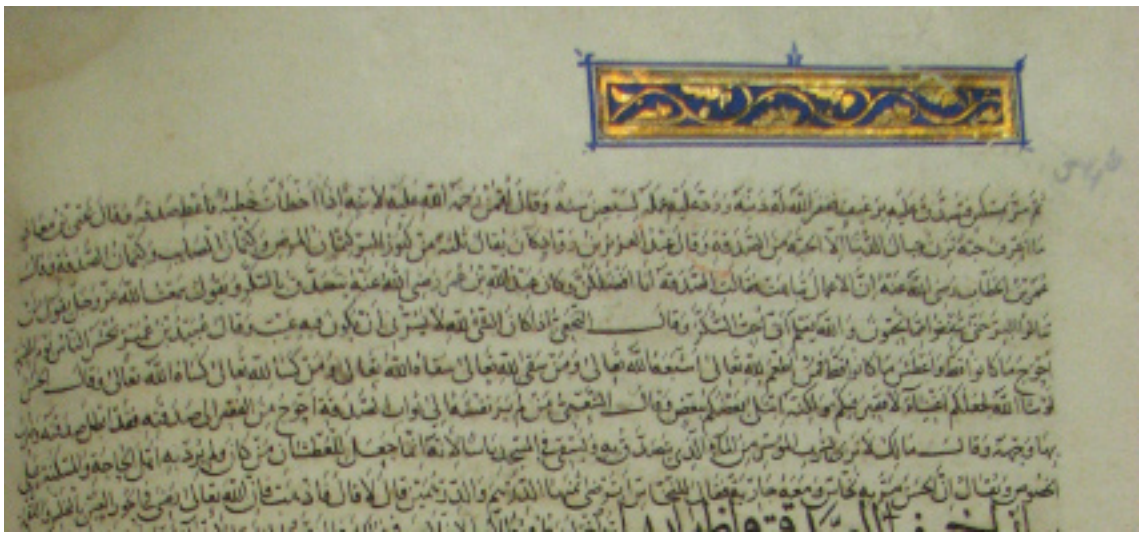 ثم مر بمسكين فتصدق عليه برغيف فغفر الله له ذنبه ورد عليه عمله لسبعين سنة وقال لقمن رحمة الله عليه لابنه اذا اخطأت خطيئة فاعط صدقة وقال يحيى بن معاذ
ما اعرف حبة تزن جبال الدنيا الا الحبة من الصدقة وقال عبد العزيز بن رواد كان يقال ثلثة من كنوز البر كتمان المرض وكتمان المصايب وكتمان الصدقة وقال
عمر بن الخطاب رضي الله عنه ان الاعمال تباهت فقالت الصدقة انا افضلكن وكان عبد الله بن عمر رضي الله عنه يتصدق بالسكر ويقول سمعت الله عز وجل يقول لن
تنالوا البر حتى تنفقوا مما تحبون والله يعلم اني احب السكر وقال النخعي اذا كان الشي لله لا يسرني ان يكون فيه عيب وقال عبيد بن عمير يحشر الناس يوم
اجوع ما كانوا قط واعطش ما كانوا قط فمن اطعم لله تعالى اشبعه الله تعالى ومن سقى لله تعالى سقاه الله تعالى ومن كسا لله تعالى كساه الله تعالى وقال الحسن
لو شا الله لجعلكم اغنيا لا فقير فيكم ولكنه ابتلى بعضكم ببعض وقال الشعبي من لم ير نفسه الى ثواب الصدقة احوج من الفقير الى صدقته فقد ابطل صدقته وضرب
بها وجهه وقال مالك لا نرى بشرب الموسر من الماء الذي يتصدق به ويسقى في المسجد باسا لانه انما جعل للعطشان من كان ولم يرد به اهل الحاجة والمسكنة على
الخصوص ويقال ان الحسن مر به نخاس ومعه جارية فقال للنخاس ترضى ثمنها الدرهم والدرهمين قال لا قال فاذهب فان الله تعالى رضي في الحور العين بالفلس واللقمة
بيان اخفاء الصدقة واظهارها